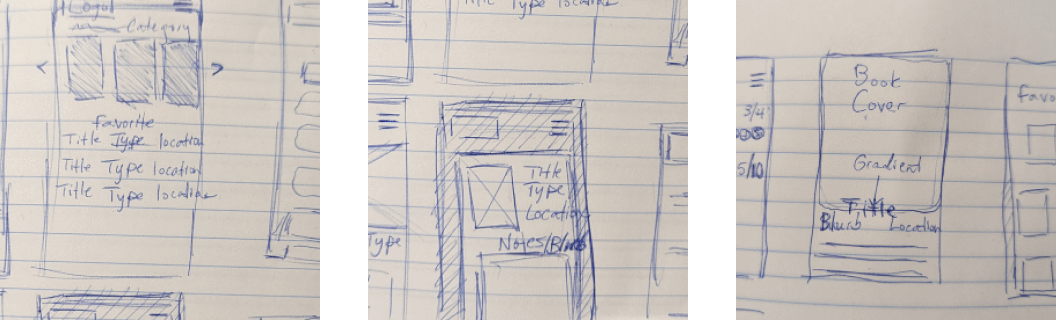 Logo
Category
<
>
Favorite
Title Type location
Title Type location
Title Type location
Title Type location
Title
Type
Location
Notes/Blurb
Type
Book
Cover
3/4
5/10
Gradient
Title
Blurb Location
Favo